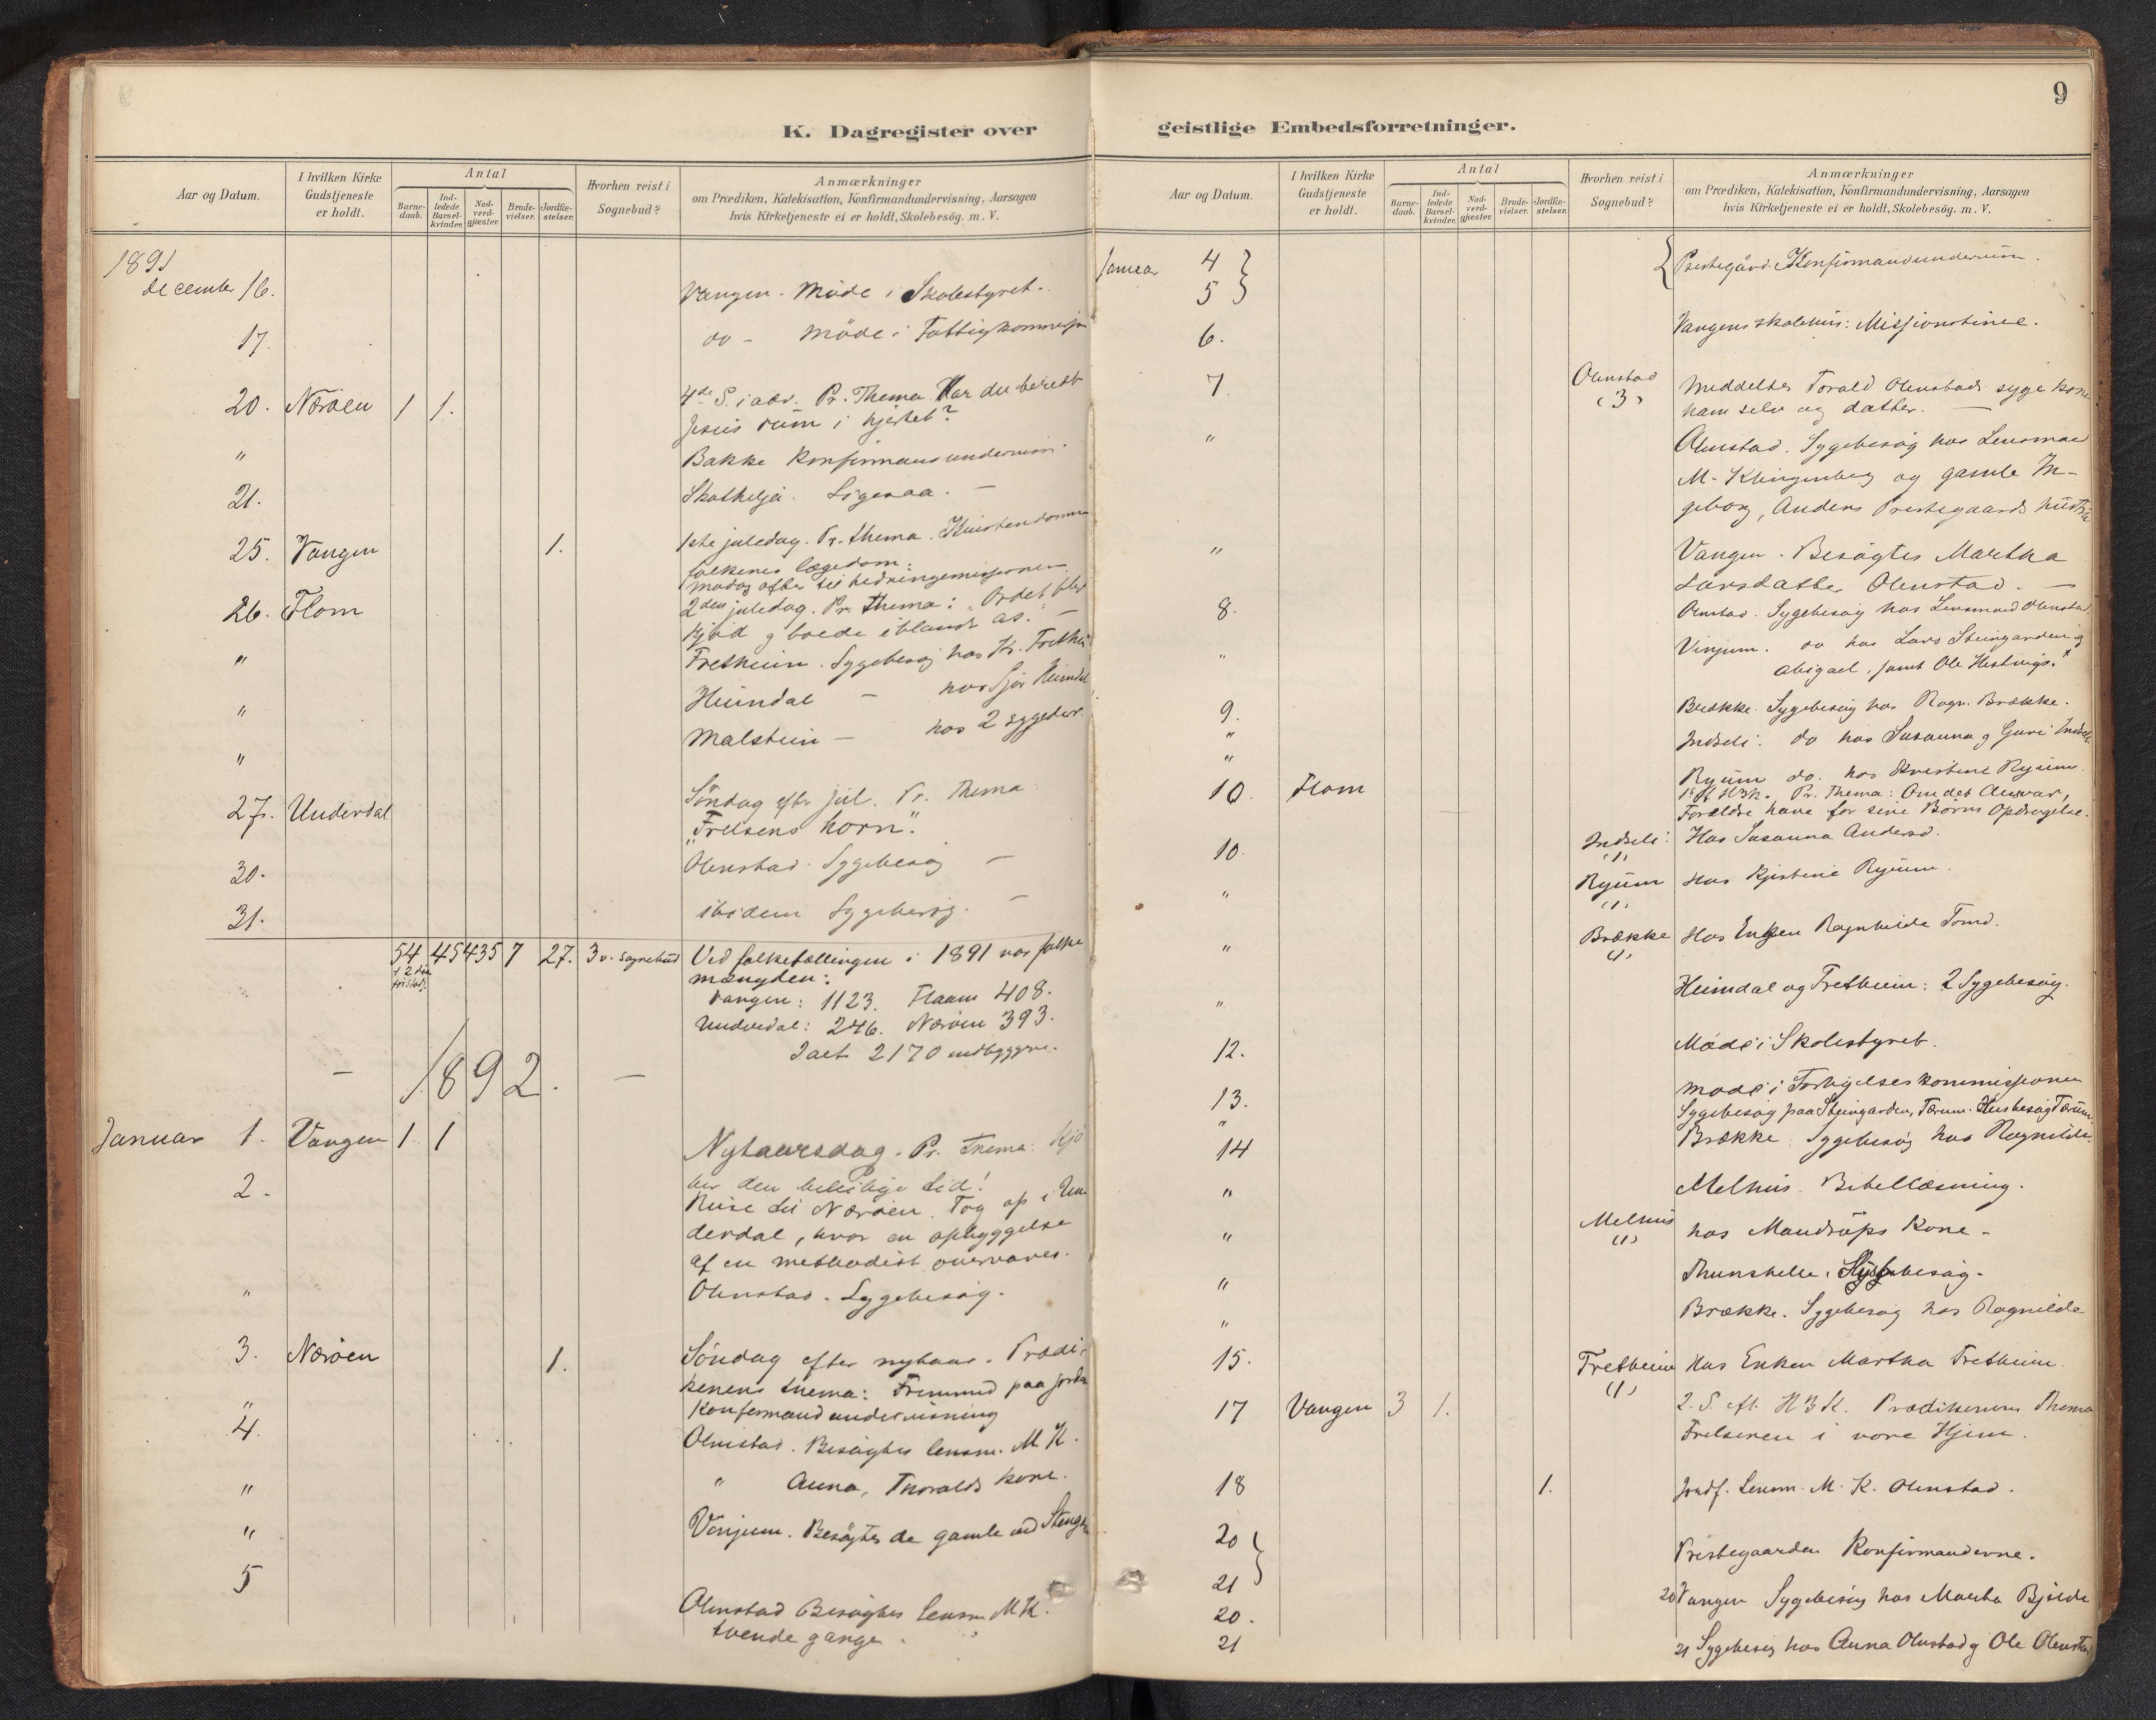 9
K. Dagregister over
Aar og Datum.
I hvilken Kirke
Gudstjeneste
er holdt.
Antal
Barne-
daab.
Ind-
ledede
Barsel-
kvinder.
Nad-
verd-
gjæster.
Brude-
vielser.
Jordfæ-
stelser.
Hvorhen reist i
Sognebud?
Anmærkninger
om Prædiken, Katekisation, Konfirmandundervisning, Aarsagen
hvis Kirketjeneste ei er holdt, Skolebesøg. m. V.
1891
December 16. Vangen. Møde i Skolestyret.
17. do - Møde i Fattigkommisjon
20. Nærøen 1 1. 4de S. i adv. Pr. Thema. Har du beredt
Jesus rum i hjertet?
" Bakke Konfirmandundervisn.
21. Ligesaa. -
25. Vangen 1. 1ste juledag. Pr. thema. Kristendommen
folkenes lægedom.
26. Flom 2den juledag. Pr. thema: "Ordet blev
kjød og boede iblandt os." -
" Fretheim. Sygebesøg hos Kr. Fretheim
" Heimdal - hos Heimdal
" Malstein - hos 2 sygedor.
27. Underdal Søndag eftr jul. Pr. Thema
"Frelsens horn".
30. Olmstad. Sygebesøg -
31. ibidem Sygebesøg. -
54 45 435 7 27. 3 v. Sognebud Ved folketællingen i 1891 var folke
mængden:
Vangen: 1123. Flaam 408.
Underdal: 246. Nærøen 393.
Ialt 2170 indbyggere.
- 1892. -
Januar 1. Vangen 1 1 Nytaarsdag. Pr. Thema:
her den beleilige tid!
2. Reise til Nærøen. Tog op i Un
derdal, hvor en opbyggelse
af en methodist overvares.
" Olmstad. Sygebesøg.
3. Nærøen 1. Søndag efter nytaar. Prædi-
kenens thema: Fremmed paa jorden
" Konfirmandundervisning
4. Olmstad. Besøgtes lensm. M K.
" " Anna, Thoralds kone.
" Vinjum. Besøgtes de gamle ved
5 Olmstad Besøgtes lensm M K.
tvende gange.
geistlige Embedsforretninger.
Aar og Datum.
I hvilken Kirke
Gudstjeneste
er holdt.
Antal
Barne-
daab.
Ind-
ledede
Barsel-
kvinder.
Nad-
verd-
gjæster.
Brude-
vielser.
Jordfæ-
stelser.
Hvorhen reist i
Sognebud?
Anmærkninger
om Prædiken, Katekisation, Konfirmandundervisning, Aarsagen
hvis Kirketjeneste ei er holdt, Skolebesög. m. V.
Januar 4 Prestegård. Konfirmandundervisn.
5
6. Vangens skolehus: Missionstime.
7 Olmstad (3) Meddeltes Torald Olmstads syge kone
ham selv og datter. -
" Olmstad. Sygebesøg hos Lensmand
M. Klingenberg og gamle In-
geborg, Anders Prestegaards hustru
" Vangen. Besøgtes Martha
Larsdatter Olmstad. -
8. Olmstad. Sygebesøg hos Lensmand Olmstad.
" Vinjum. do hos Lars Steingarden og
Abigael, samt Ole
9. Brække. Sygebesøg hos Ragn. Brække.
" Indseli. do hos Susanna og Guri Indseli
" Ryum do. hos Kristine Ryum.
10. Flom 1ste S. H3K. Pr. Thema: Om det Ansvar,
Forældre have for sine Børns Opdragelse.
10. Indseli: (1) Hos Susanna Andersd.
" Ryum (1) Hos Kjistine Ryum.
" Brække (1) Hos Enken Ragnhilde Tomd.
" Heimdal og Fretheim: 2 Sygebesøg.
12. Møde i Skolestyret.
13. Møde i Forligelseskommissionen
" Sygebesøg paa Steingarden, Tærum. Husbesøg Tærum.
14 Brække. Sygebesøg hos Ragnilde.
" Melhus. Bibellæsning.
" Melhus (1) hos Mandrups Kone.
" Thunshelle. Sygebesøg.
" Brække. Sygebesøg hos Ragnilde
15. Fretheim (1) Hos Enken Martha Fretheim
17 Vangen 3 1. 2. S. eft. H3K. Prædikenens Thema
Frelseren i vore Hjem.
18 1. Jordf. Lensm. M. K. Olmstad.
20 Prestegaarden Konfirmanderne.
21
20. 20 Vangen Sygebesøg hos Martha Bjelde
21 21 Sygebesøg hos Anna Olmstad og Ole Olmstad